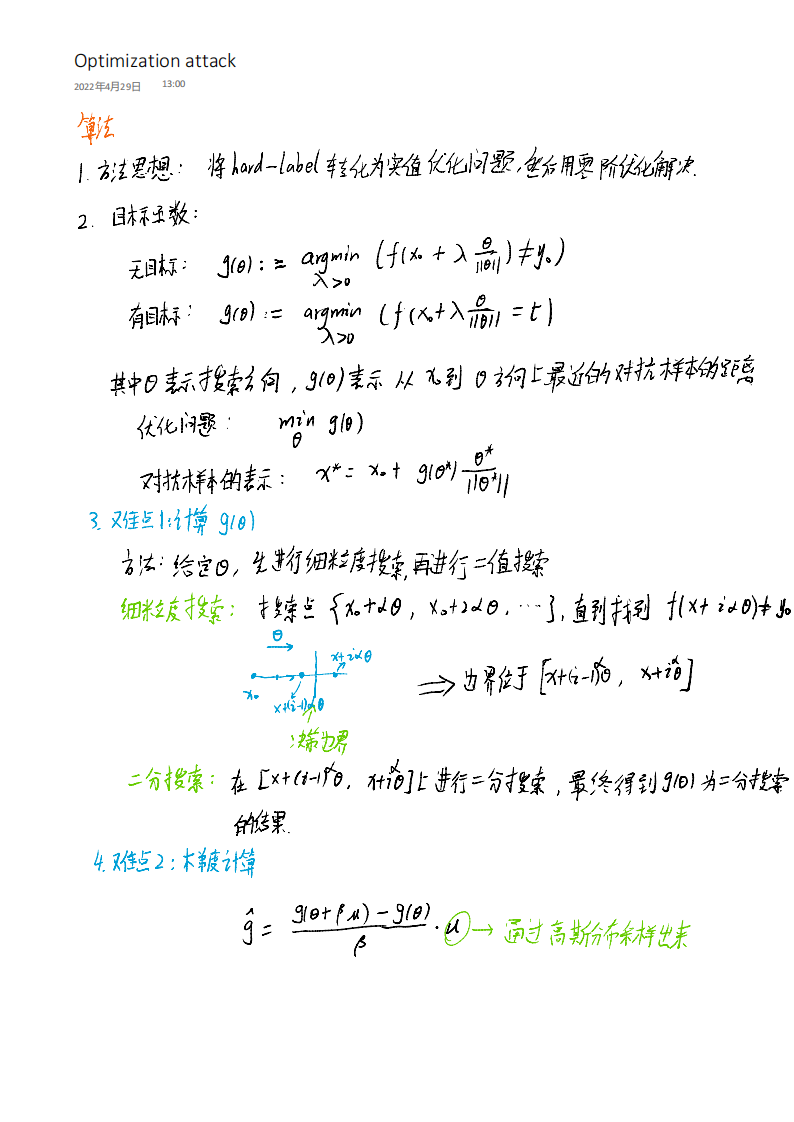 Optimization attack
2022年4月29日 13:00
算法
1. 方法思想： 将hard-label转化为实值优化问题，然后用零阶优化解决.
2. 目标函数：
无目标： g(θ) := argmin λ>0 (f(x₀ + λ θ/||θ||) ≠ y₀)
有目标： g(θ) := argmin λ>0 (f(x₀+λ θ/||θ|| = t)
其中θ表示搜索方向，g(θ)表示从x₀到θ方向上最近的对抗样本的距离
优化问题： min θ g(θ)
对抗样本的表示： x* = x₀ + g(θ*) θ*/||θ*||
3. 难点1：计算 g(θ)
方法：给定θ，先进行细粒度搜索，再进行二值搜索
细粒度搜索： 搜索点 {x₀+αθ, x₀+2αθ, …}，直到找到 f(x+iαθ)≠y₀
θ
x+iαθ
x₀
x+(i-1)αθ
⟹ 边界位于 [x+(i-1)αθ, x+iαθ]
决策边界
二分搜索： 在 [x+(i-1)αθ, x+iαθ]上进行二分搜索，最终得到g(θ)为二分搜索
的结果.
4. 难点2：梯度计算
ĝ = (g(θ+βu) - g(θ))/β · u → 通过高斯分布采样出来